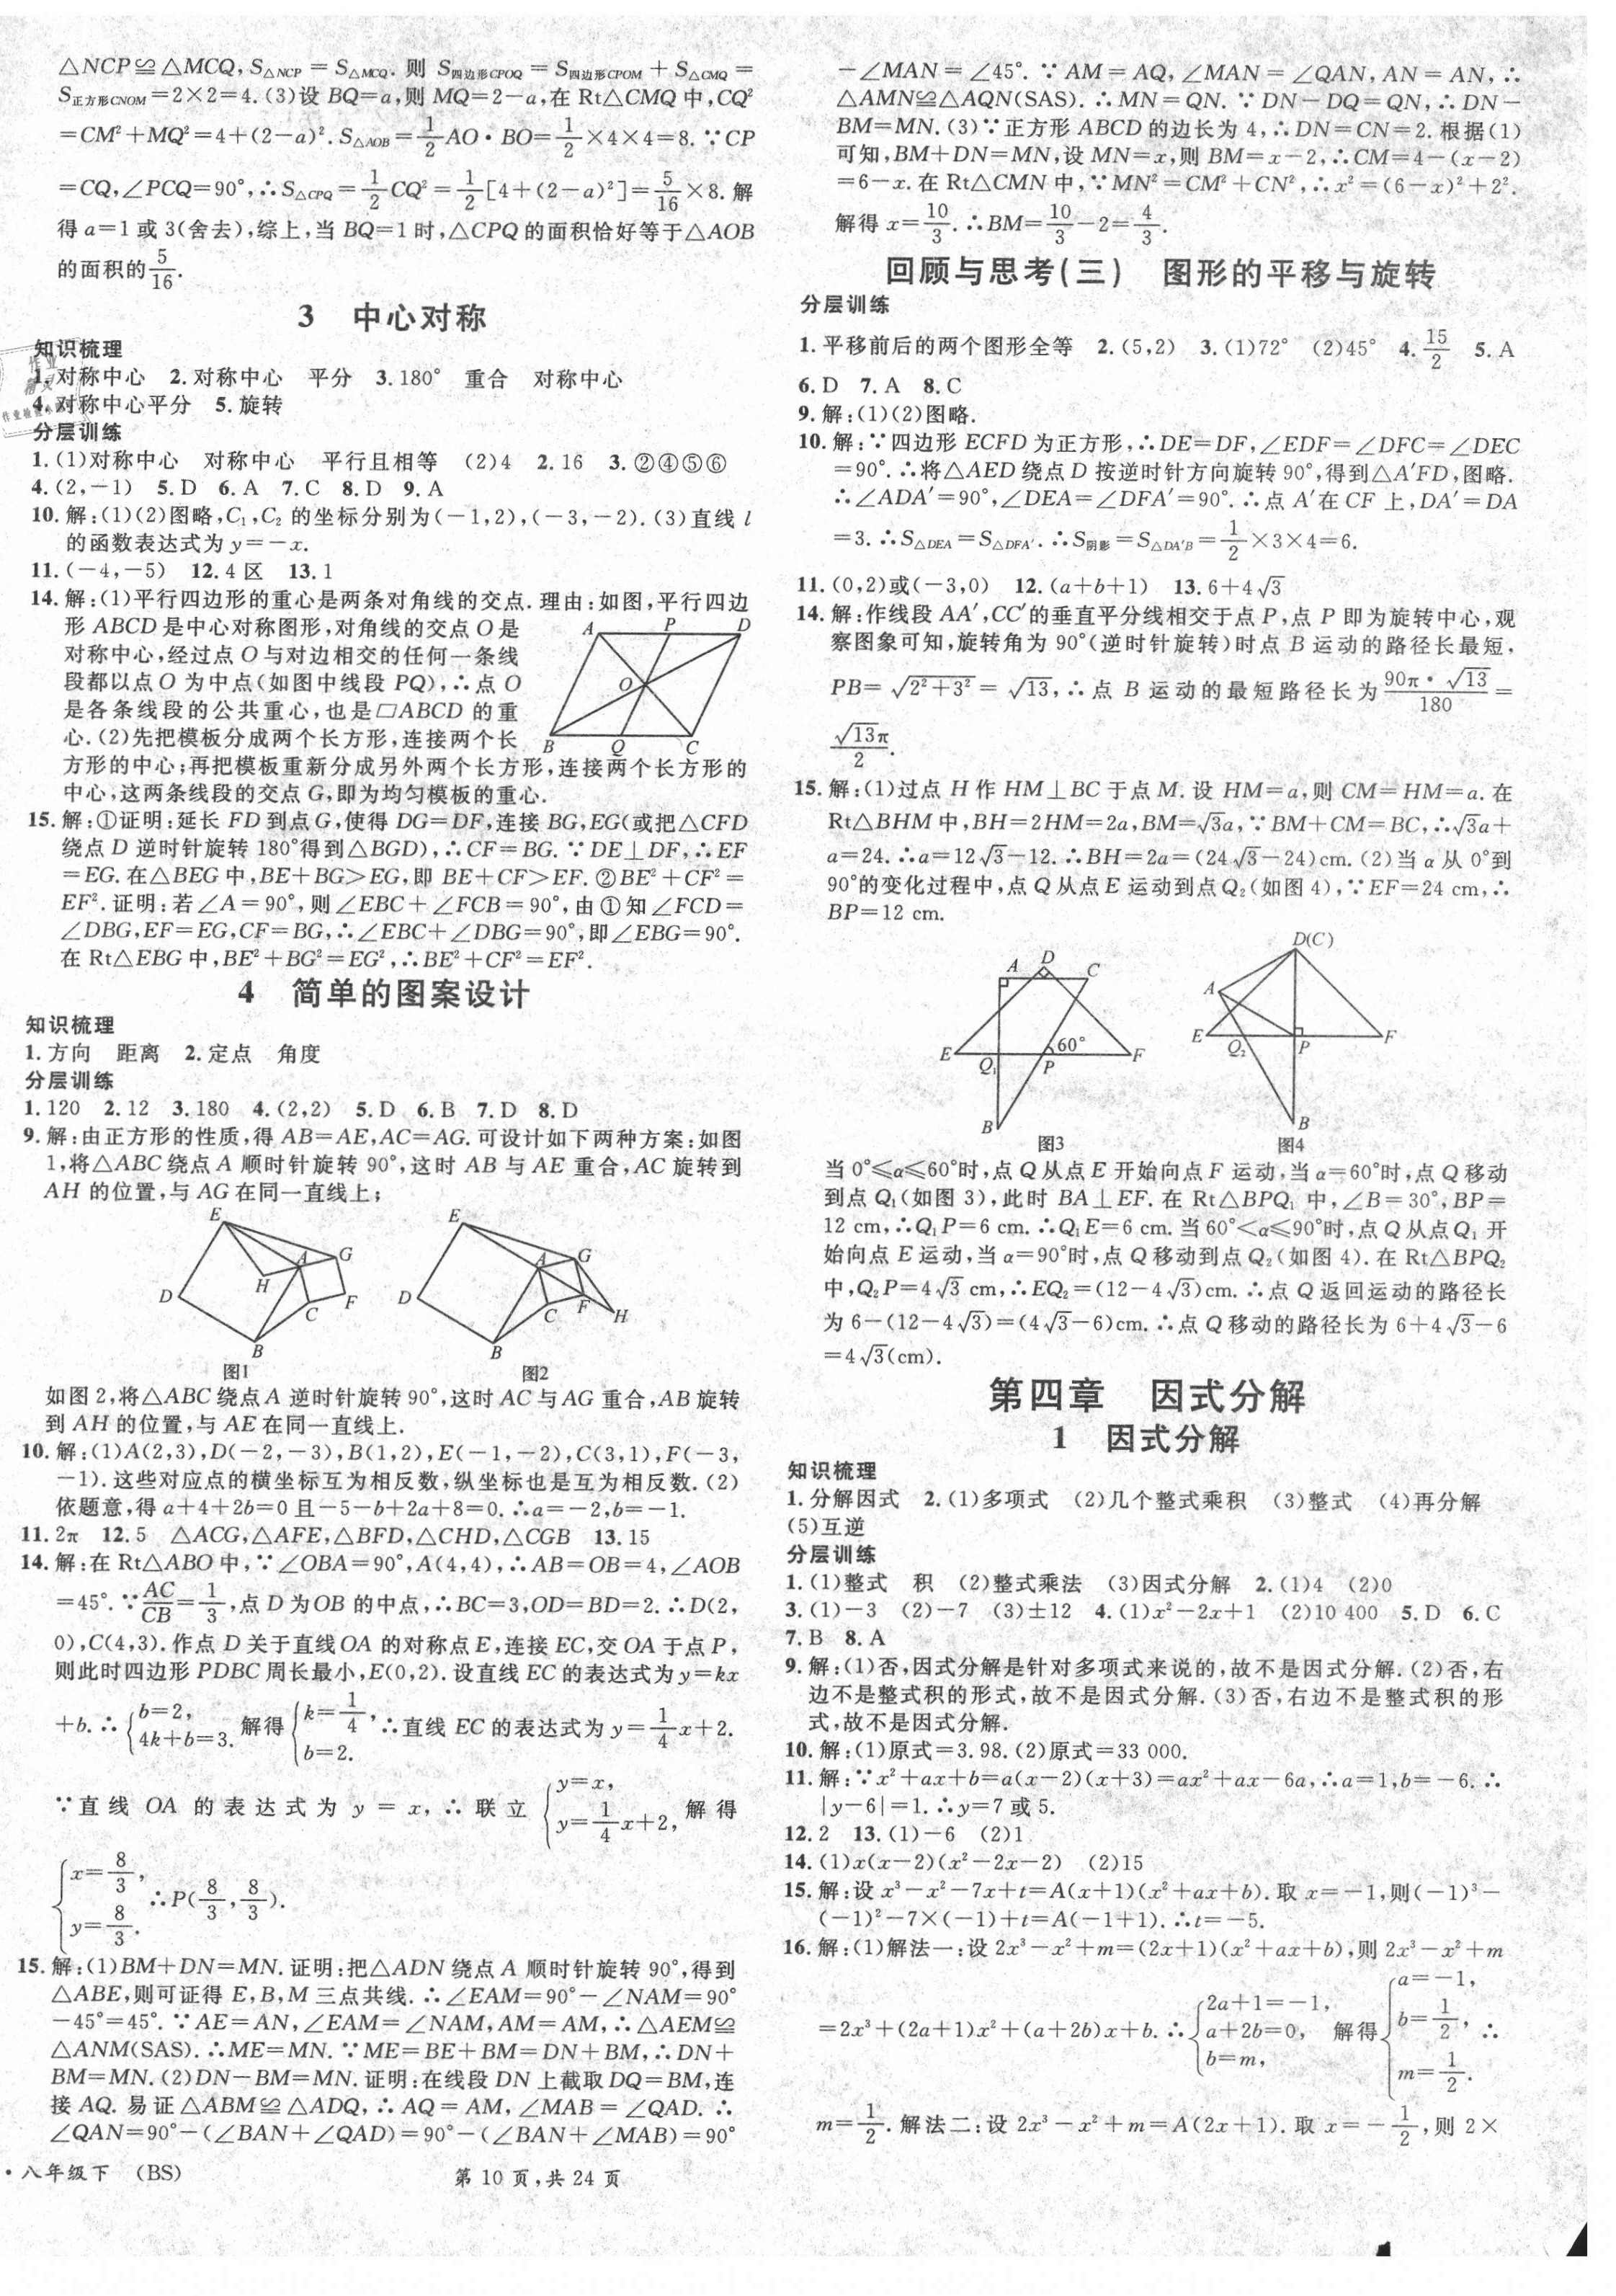 △NCP≌△MCQ,S△NCP=S△MCQ.则 S四边形CPOQ=S四边形CPOM+S△CMQ=
S正方形CNOM=2×2=4.(3)设 BQ=a,则 MQ=2-a,在 Rt△CMQ 中,CQ²
=CM²+MQ²=4+(2-a)².S△AOB=1/2 AO·BO=1/2×4×4=8.∵CP
=CQ,∠PCQ=90°,∴S△CPQ=1/2 CQ²=1/2[4+(2-a)²]=5/16×8.解
得 a=1 或 3(舍去),综上,当 BQ=1 时,△CPQ 的面积恰好等于△AOB
的面积的5/16.
3 中心对称
知识梳理
1.对称中心 2.对称中心 平分 3.180° 重合 对称中心
4.对称中心平分 5.旋转
分层训练
1.(1)对称中心 对称中心 平行且相等 (2)4 2.16 3.②④⑤⑥
4.(2,-1) 5.D 6.A 7.C 8.D 9.A
10.解:(1)(2)图略,C₁,C₂ 的坐标分别为(-1,2),(-3,-2).(3)直线 l
的函数表达式为 y=-x.
11.(-4,-5) 12.4 区 13.1
14.解:(1)平行四边形的重心是两条对角线的交点.理由:如图,平行四边
形 ABCD 是中心对称图形,对角线的交点 O 是
对称中心,经过点 O 与对边相交的任何一条线
段都以点 O 为中点(如图中线段 PQ),∴点 O
是各条线段的公共重心,也是▱ABCD 的重
心.(2)先把模板分成两个长方形,连接两个长
方形的中心;再把模板重新分成另外两个长方形,连接两个长方形的
中心,这两条线段的交点 G,即为均匀模板的重心.
A P D
O
B Q C
15.解:①证明:延长 FD 到点 G,使得 DG=DF,连接 BG,EG(或把△CFD
绕点 D 逆时针旋转 180°得到△BGD),∴CF=BG.∵DE⊥DF,∴EF
=EG.在△BEG 中,BE+BG>EG,即 BE+CF>EF.②BE²+CF²=
EF².证明:若∠A=90°,则∠EBC+∠FCB=90°,由①知∠FCD=
∠DBG,EF=EG,CF=BG,∴∠EBC+∠DBG=90°,即∠EBG=90°.
在 Rt△EBG 中,BE²+BG²=EG²,∴BE²+CF²=EF².
4 简单的图案设计
知识梳理
1.方向 距离 2.定点 角度
分层训练
1.120 2.12 3.180 4.(2,2) 5.D 6.B 7.D 8.D
9.解:由正方形的性质,得 AB=AE,AC=AG.可设计如下两种方案:如图
1,将△ABC 绕点 A 顺时针旋转 90°,这时 AB 与 AE 重合,AC 旋转到
AH 的位置,与 AG 在同一直线上;
E A G H D C F B
图1
E A G D C F H B
图2
如图 2,将△ABC 绕点 A 逆时针旋转 90°,这时 AC 与 AG 重合,AB 旋转
到 AH 的位置,与 AE 在同一直线上.
10.解:(1)A(2,3),D(-2,-3),B(1,2),E(-1,-2),C(3,1),F(-3,
-1).这些对应点的横坐标互为相反数,纵坐标也是互为相反数.(2)
依题意,得 a+4+2b=0 且-5-b+2a+8=0.∴a=-2,b=-1.
11.2π 12.5 △ACG,△AFE,△BFD,△CHD,△CGB 13.15
14.解:在 Rt△ABO 中,∵∠OBA=90°,A(4,4),∴AB=OB=4,∠AOB
=45°.∵AC/CB=1/3,点 D 为 OB 的中点,∴BC=3,OD=BD=2.∴D(2,
0),C(4,3).作点 D 关于直线 OA 的对称点 E,连接 EC,交 OA 于点 P,
则此时四边形 PDBC 周长最小,E(0,2).设直线 EC 的表达式为 y=kx
+b.∴{b=2, 4k+b=3. 解得{k=1/4, b=2. ∴直线 EC 的表达式为 y=1/4 x+2.
∵直线 OA 的表达式为 y=x,∴联立{y=x, y=1/4 x+2, 解得
{x=8/3, y=8/3. ∴P(8/3,8/3).
15.解:(1)BM+DN=MN.证明:把△ADN 绕点 A 顺时针旋转 90°,得到
△ABE,则可证得 E,B,M 三点共线.∴∠EAM=90°-∠NAM=90°
-45°=45°.∵AE=AN,∠EAM=∠NAM,AM=AM,∴△AEM≌
△ANM(SAS).∴ME=MN.∵ME=BE+BM=DN+BM,∴DN+
BM=MN.(2)DN-BM=MN.证明:在线段 DN 上截取 DQ=BM,连
接 AQ.易证△ABM≌△ADQ,∴AQ=AM,∠MAB=∠QAD.∴
∠QAN=90°-(∠BAN+∠QAD)=90°-(∠BAN+∠MAB)=90°
-∠MAN=∠45°.∵AM=AQ,∠MAN=∠QAN,AN=AN,∴
△AMN≌△AQN(SAS).∴MN=QN.∵DN-DQ=QN,∴DN-
BM=MN.(3)∵正方形 ABCD 的边长为 4,∴DN=CN=2.根据(1)
可知,BM+DN=MN,设 MN=x,则 BM=x-2,∴CM=4-(x-2)
=6-x.在 Rt△CMN 中,∵MN²=CM²+CN²,∴x²=(6-x)²+2².
解得 x=10/3.∴BM=10/3-2=4/3.
回顾与思考(三) 图形的平移与旋转
分层训练
1.平移前后的两个图形全等 2.(5,2) 3.(1)72° (2)45° 4.15/2 5.A
6.D 7.A 8.C
9.解:(1)(2)图略.
10.解:∵四边形 ECFD 为正方形,∴DE=DF,∠EDF=∠DFC=∠DEC
=90°.∴将△AED 绕点 D 按逆时针方向旋转 90°,得到△A′FD,图略.
∴∠ADA′=90°,∠DEA=∠DFA′=90°.∴点 A′在 CF 上,DA′=DA
=3.∴S△DEA=S△DFA′.∴S阴影=S△DA′B=1/2×3×4=6.
11.(0,2)或(-3,0) 12.(a+b+1) 13.6+4√3
14.解:作线段 AA′,CC′的垂直平分线相交于点 P,点 P 即为旋转中心,观
察图象可知,旋转角为 90°(逆时针旋转)时点 B 运动的路径长最短,
PB=√(2²+3²)=√13,∴点 B 运动的最短路径长为 90π·√13/180=
√13π/2.
15.解:(1)过点 H 作 HM⊥BC 于点 M.设 HM=a,则 CM=HM=a.在
Rt△BHM 中,BH=2HM=2a,BM=√3a,∵BM+CM=BC,∴√3a+
a=24.∴a=12√3-12.∴BH=2a=(24√3-24)cm.(2)当 α 从 0°到
90°的变化过程中,点 Q 从点 E 运动到点 Q₂(如图 4),∵EF=24 cm,∴
BP=12 cm.
A D C 60° E Q₁ P F B
图3
D(C) A E Q₂ P F B
图4
当 0°≤α≤60°时,点 Q 从点 E 开始向点 F 运动,当 α=60°时,点 Q 移动
到点 Q₁(如图 3),此时 BA⊥EF.在 Rt△BPQ₁ 中,∠B=30°,BP=
12 cm,∴Q₁P=6 cm.∴Q₁E=6 cm.当 60°<α≤90°时,点 Q 从点 Q₁ 开
始向点 E 运动,当 α=90°时,点 Q 移动到点 Q₂(如图 4).在 Rt△BPQ₂
中,Q₂P=4√3 cm,∴EQ₂=(12-4√3)cm.∴点 Q 返回运动的路径长
为 6-(12-4√3)=(4√3-6)cm.∴点 Q 移动的路径长为 6+4√3-6
=4√3(cm).
第四章 因式分解
1 因式分解
知识梳理
1.分解因式 2.(1)多项式 (2)几个整式乘积 (3)整式 (4)再分解
(5)互逆
分层训练
1.(1)整式 积 (2)整式乘法 (3)因式分解 2.(1)4 (2)0
3.(1)-3 (2)-7 (3)±12 4.(1)x²-2x+1 (2)10 400 5.D 6.C
7.B 8.A
9.解:(1)否,因式分解是针对多项式来说的,故不是因式分解.(2)否,右
边不是整式积的形式,故不是因式分解.(3)否,右边不是整式积的形
式,故不是因式分解.
10.解:(1)原式=3.98.(2)原式=33 000.
11.解:∵x²+ax+b=a(x-2)(x+3)=ax²+ax-6a,∴a=1,b=-6.∴
|y-6|=1.∴y=7 或 5.
12.2 13.(1)-6 (2)1
14.(1)x(x-2)(x²-2x-2) (2)15
15.解:设 x³-x²-7x+t=A(x+1)(x²+ax+b).取 x=-1,则(-1)³-
(-1)²-7×(-1)+t=A(-1+1).∴t=-5.
16.解:(1)解法一:设 2x³-x²+m=(2x+1)(x²+ax+b),则 2x³-x²+m
=2x³+(2a+1)x²+(a+2b)x+b.∴{2a+1=-1, a+2b=0, b=m, 解得{a=-1, b=1/2, m=1/2. ∴
m=1/2.解法二:设 2x³-x²+m=A(2x+1).取 x=-1/2,则 2×
·八年级下 (BS)
第 10 页,共 24 页